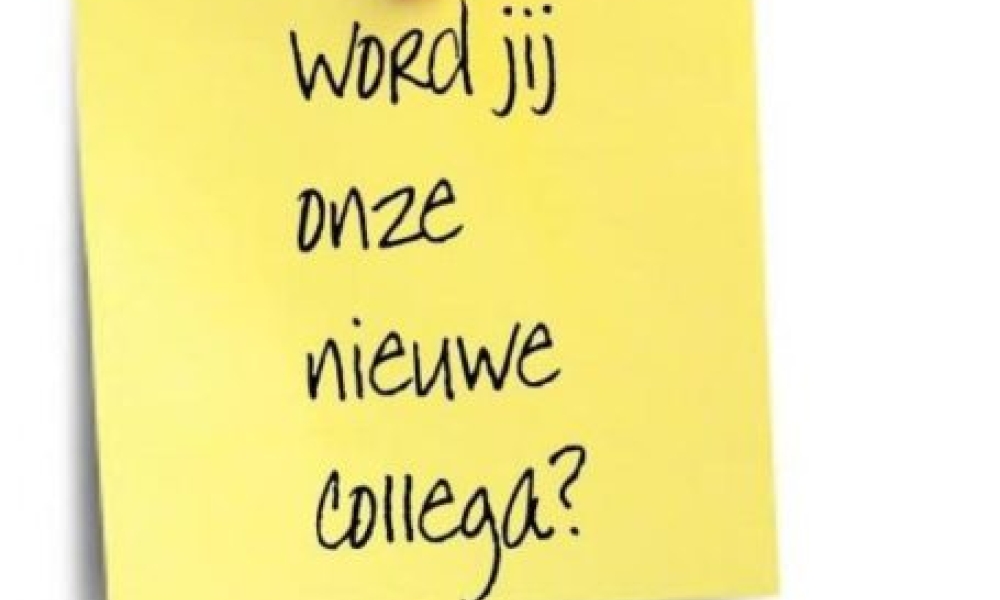 word jij
onze
nieuwe
collega?